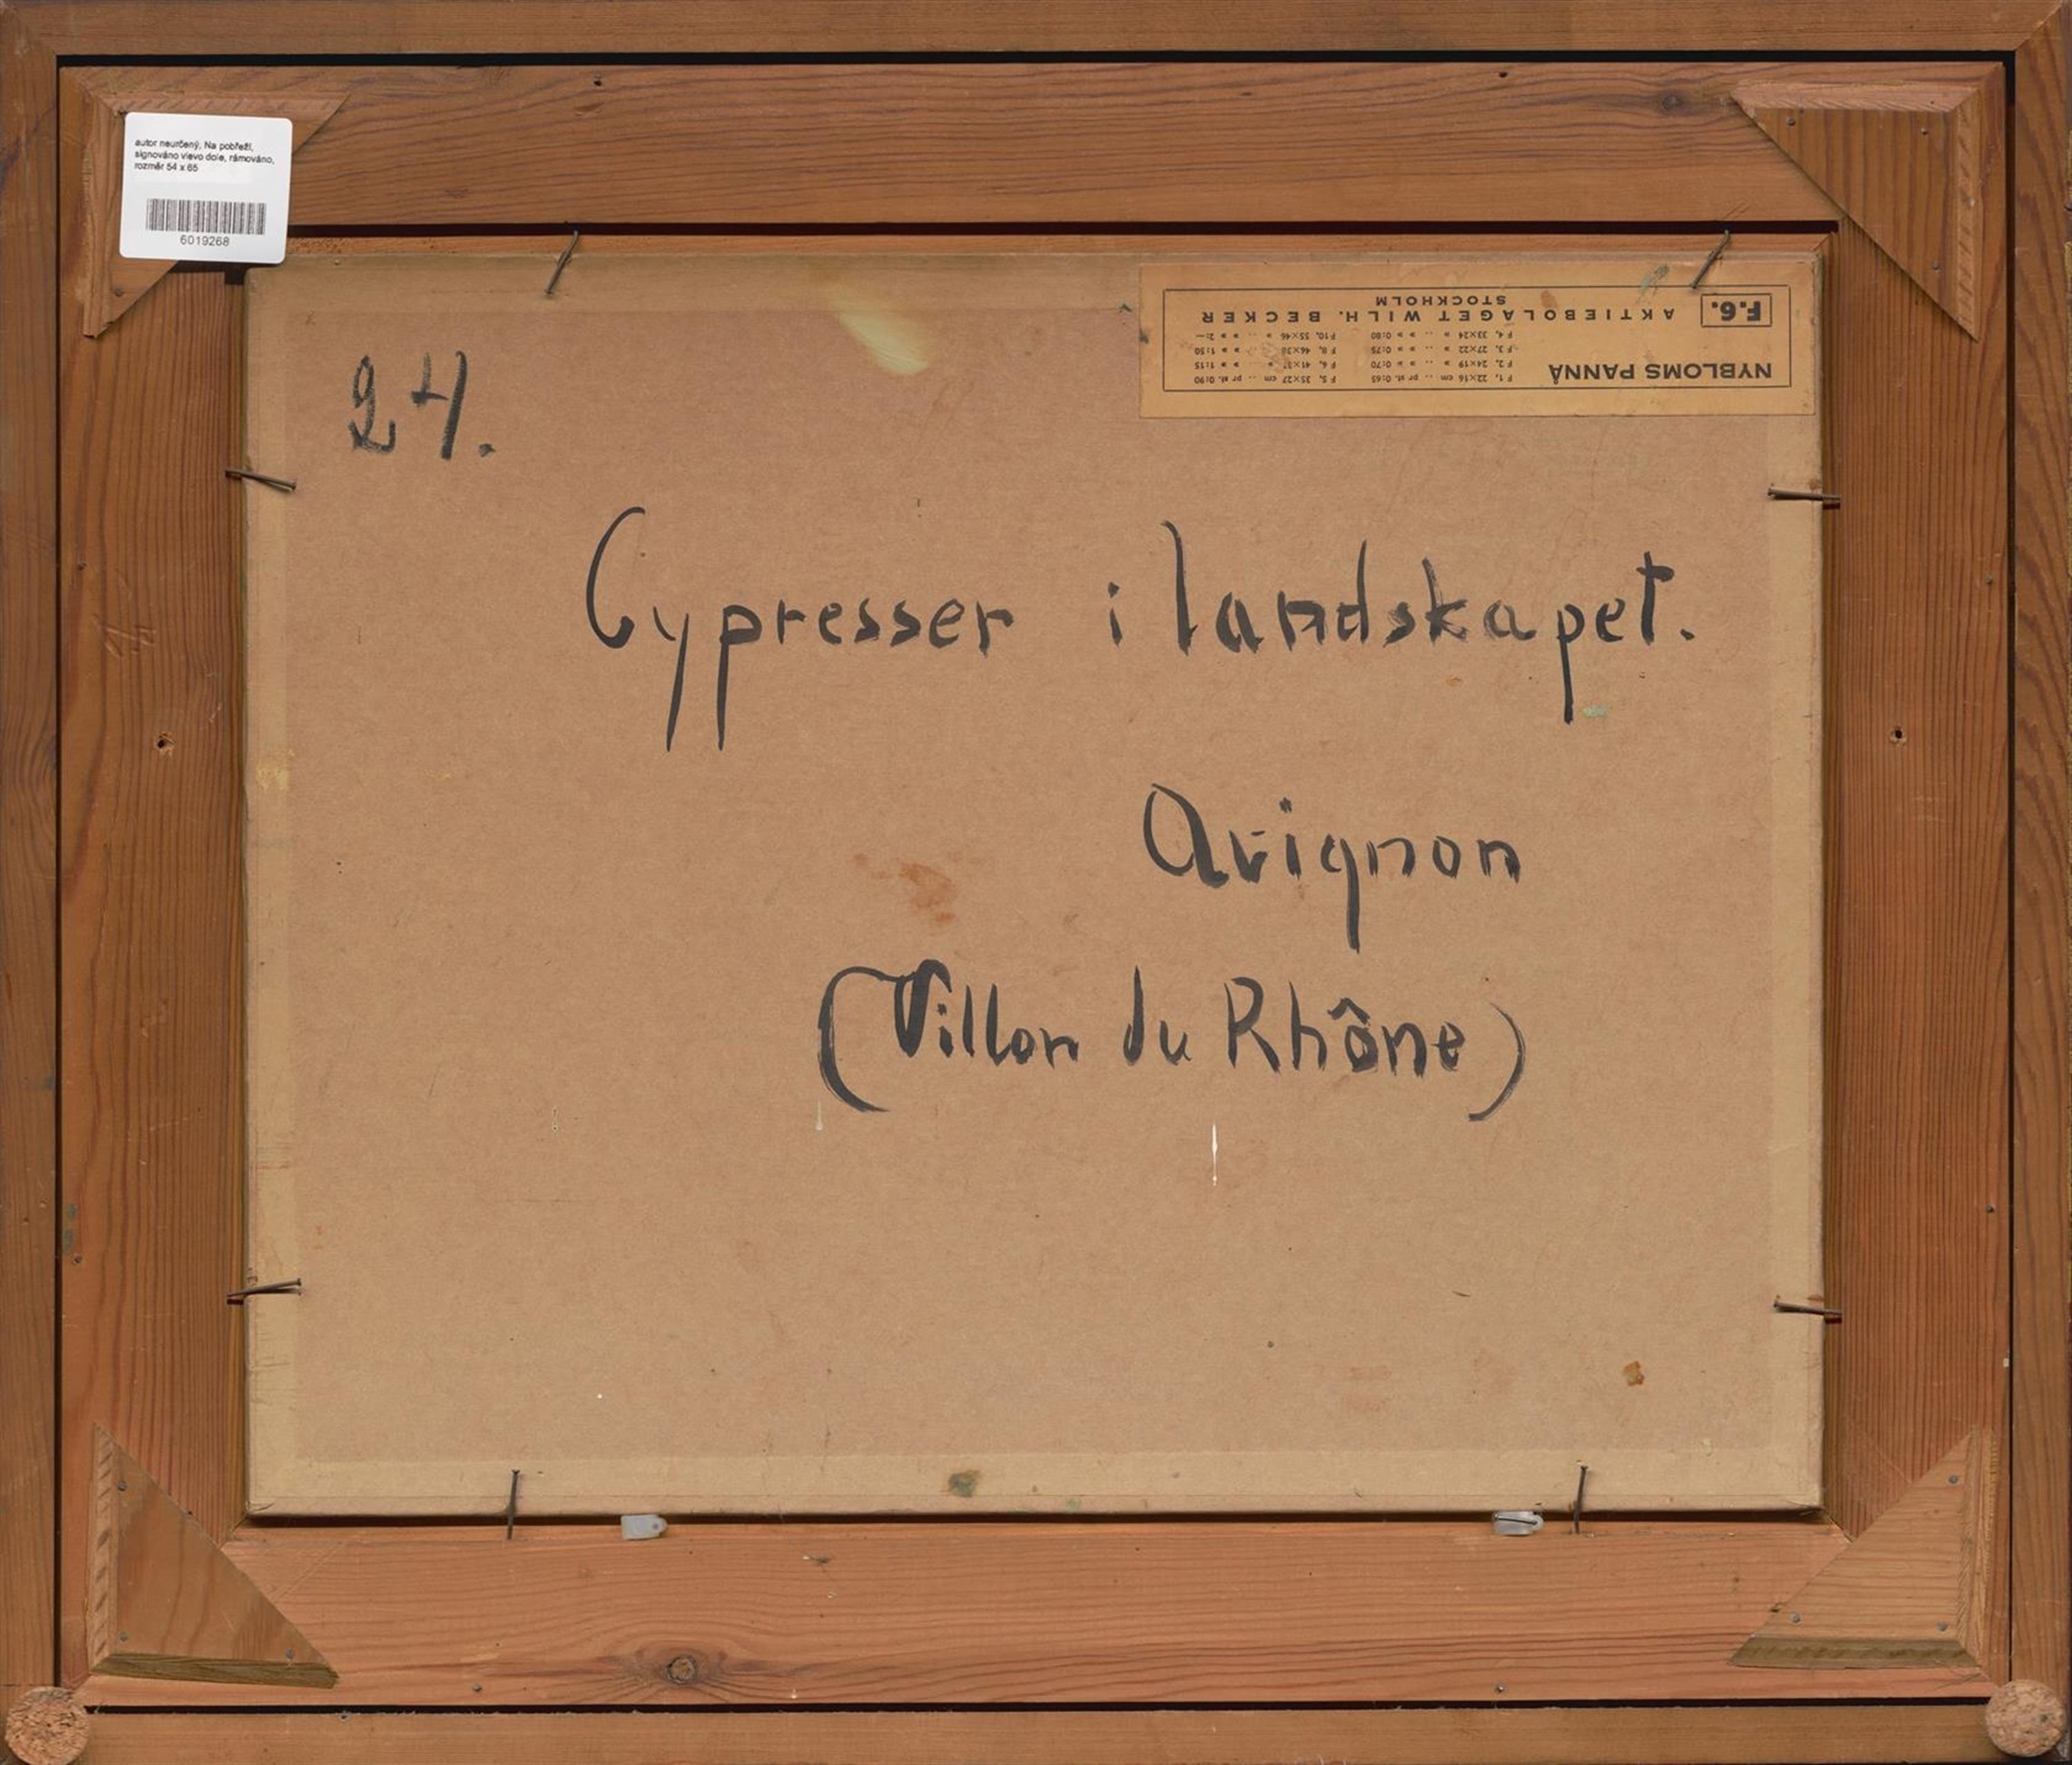 autor neurčený, Na pobřeží,
signováno vlevo dole, rámováno,
rozměr 54 x 65
6019268
NYBLOMS PANNÅ
F 1, 22×16 cm .. pr st. 0:65
F 2, 24×19 » .. » » 0:70
F 3, 27×22 » .. » » 0:75
F 4, 33×24 » .. » » 0:80
F 5, 35×27 cm .. pr st. 0:90
F 6, 41×33 » » 1:15
F 8, 46×38 » » 1:50
F 10, 55×46 » .. » » 2:—
F.6.
AKTIEBOLAGET WILH. BECKER
STOCKHOLM
24.
Cypresser i landskapet.
Avignon
(Villon du Rhône)